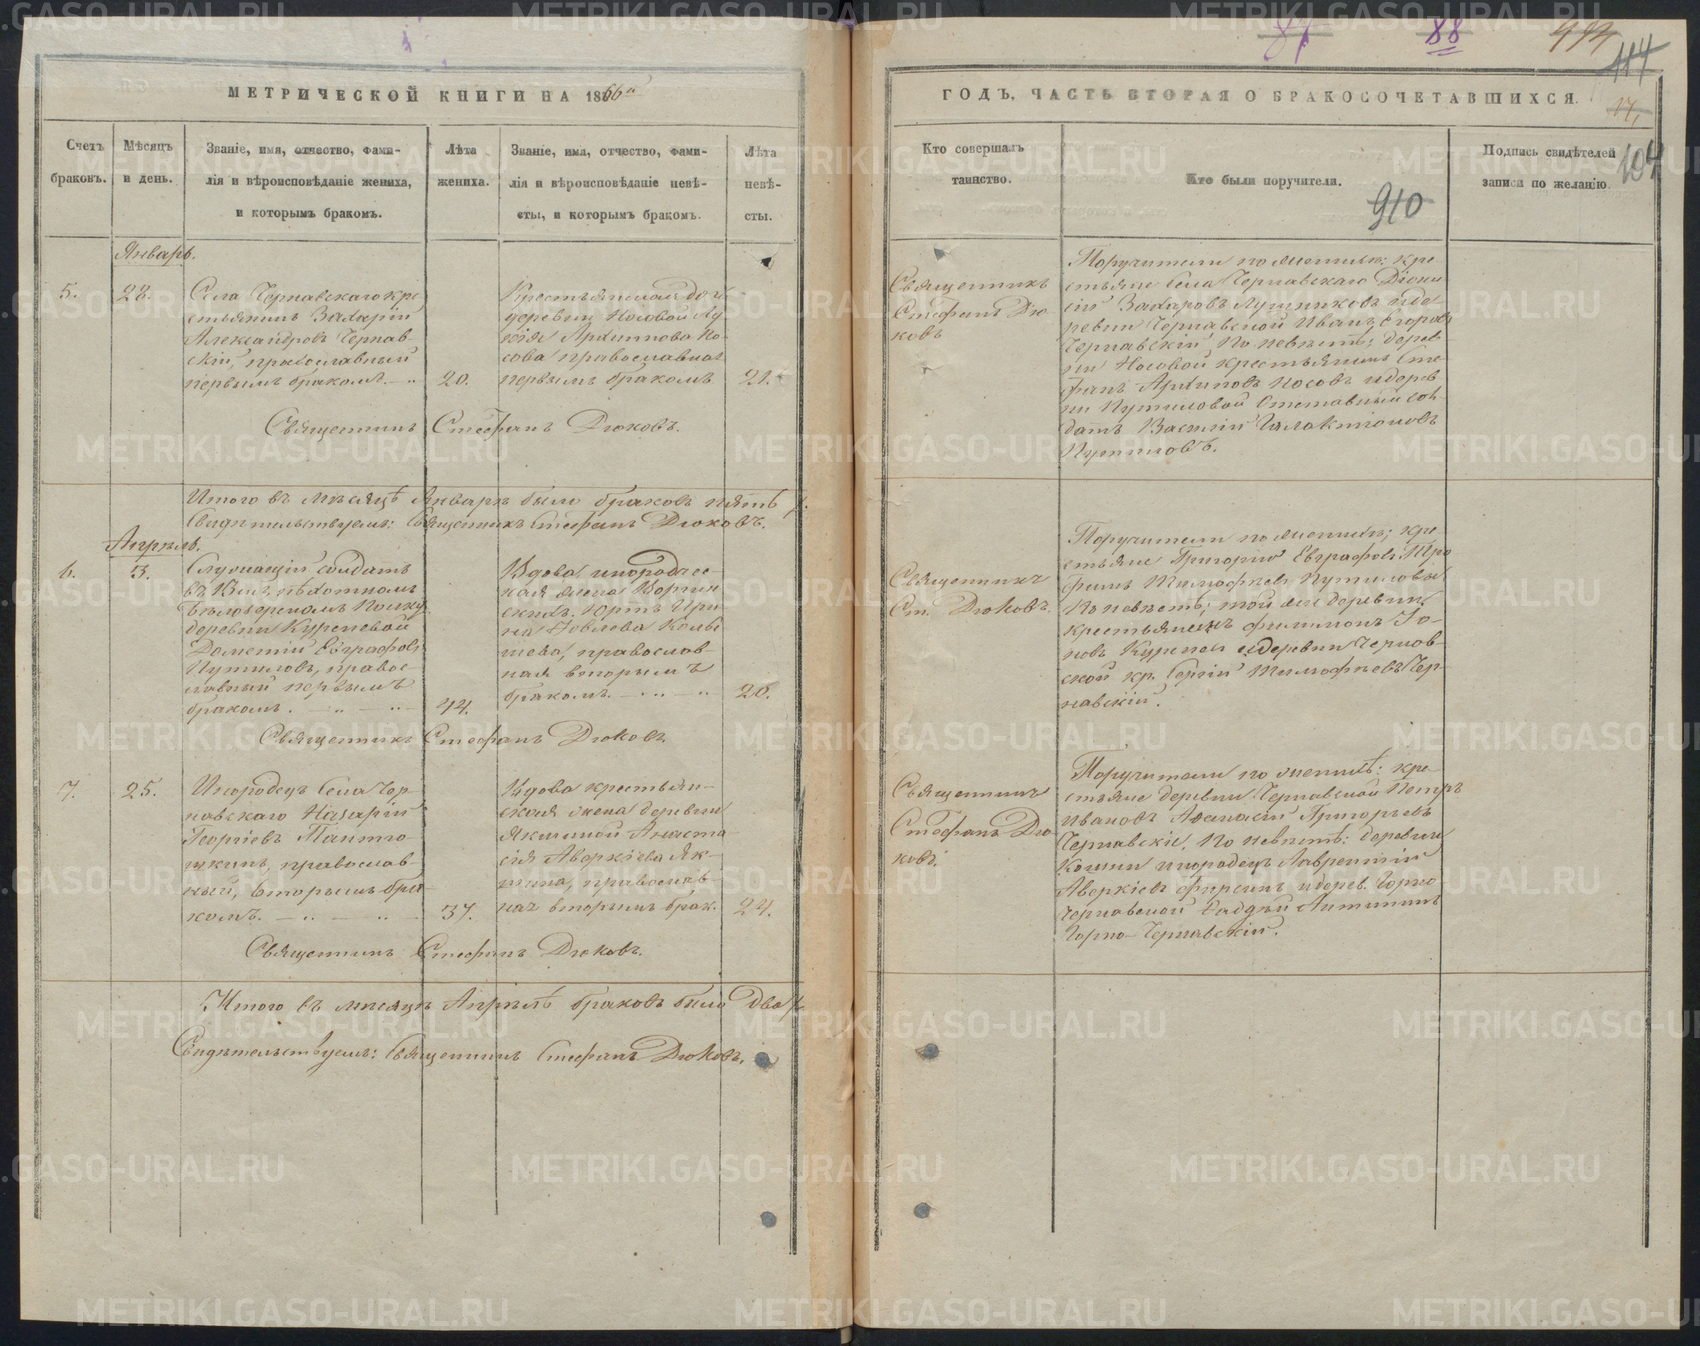 МЕТРИЧЕСКОЙ КНИГИ НА 1866й
Счетъ браковъ.
Мѣсяцъ и день.
Званіе, имя, отчество, фами-
лія и вѣроисповѣданіе жениха,
и которымъ бракомъ.
Лѣта жениха.
Званіе, имя, отчество, фами-
лія и вѣроисповѣданіе невѣ-
сты, и которымъ бракомъ.
Лѣта невѣ-
сты.
Январь.
5.
28.
Села Чернавскаго кре
стьянинъ Захарій
Александровъ Чернав-
скій, православный
первымъ бракомъ.
20.
Крестьянская дочь
деревни Носовой Лу
кія Архипова Но-
сова православная
первымъ бракомъ
21.
Священникъ Стефанъ Дюковъ.
Итого въ мѣсяцѣ Январѣ было браковъ пять
Свидѣтельствуемъ: Священникъ Стефанъ Дюковъ.
Апрѣль.
6.
3.
Служащій солдатъ
пѣхотномъ
Бѣлозерскомъ полку
деревни Куреневой
Дометій Евграфовъ
Путиловъ, правос-
лавный первымъ
бракомъ.
44.
Вдова инородчес-
кая жена
скихъ Юртъ Ири
на
шева, православ-
ная вторымъ
бракомъ.
26.
Священникъ Стефанъ Дюковъ.
7.
25.
Инородецъ Села Чер-
навскаго Назарій
Георгіевъ Панто
шкинъ, православ-
ный, вторымъ бра-
комъ.
37.
Вдова крестьян-
ская жена деревни
Якшиной Анаста
сія Аверкіева Як-
шина, православ-
ная вторымъ брак.
24.
Священникъ Стефанъ Дюковъ.
Итого въ мѣсяцѣ Апрѣлѣ браковъ было два
Свидѣтельствуемъ: Священникъ Стефанъ Дюковъ.
87
88
114
ГОДЪ, ЧАСТЬ ВТОРАЯ О БРАКОСОЧЕТАВШИХСЯ.
Кто совершалъ
таинство.
Кто были поручители.
910
Подпись свидѣтелей
записи по желанію.
104
Священникъ
Стефанъ Дю
ковъ
Поручители по женихѣ: кре-
стьяне Села Чернавскаго Діони
сій Захаровъ Лушниковъ и де-
ревни Чернавской Иванъ Егоровъ
Чернавскій. По невѣстѣ; дерев
ни Носовой крестьянинъ Сте-
фанъ Архиповъ Носовъ и дерев
ни Путиловой Отставный сол
датъ Василій Галактіоновъ
Путиловъ.
Священникъ
Ст. Дюковъ.
Поручители по женихѣ; кре
стьяне Григорій Евграфовъ, Тро
фимъ Тимофеевъ Путиловы
По невѣстѣ; той же деревни
крестьянинъ Филимонъ Іо-
новъ Куренев и деревни Чернав-
ской кр. Сергій Тимофѣевъ Чер-
навскій.
Священникъ
Стефанъ Дю
ковъ.
Поручители по женихѣ: кре-
стьяне деревни Чернавской Петръ
Ивановъ Афанасій Григорьевъ
Чернавскіе. По невѣстѣ: деревни
инородецъ Лаврентій
Аверкіевъ Фирсинъ и дерев. Горно
Чернавской Фадѣй
Горно-Чернавскій.
METRIKI.GASO-URAL.RU